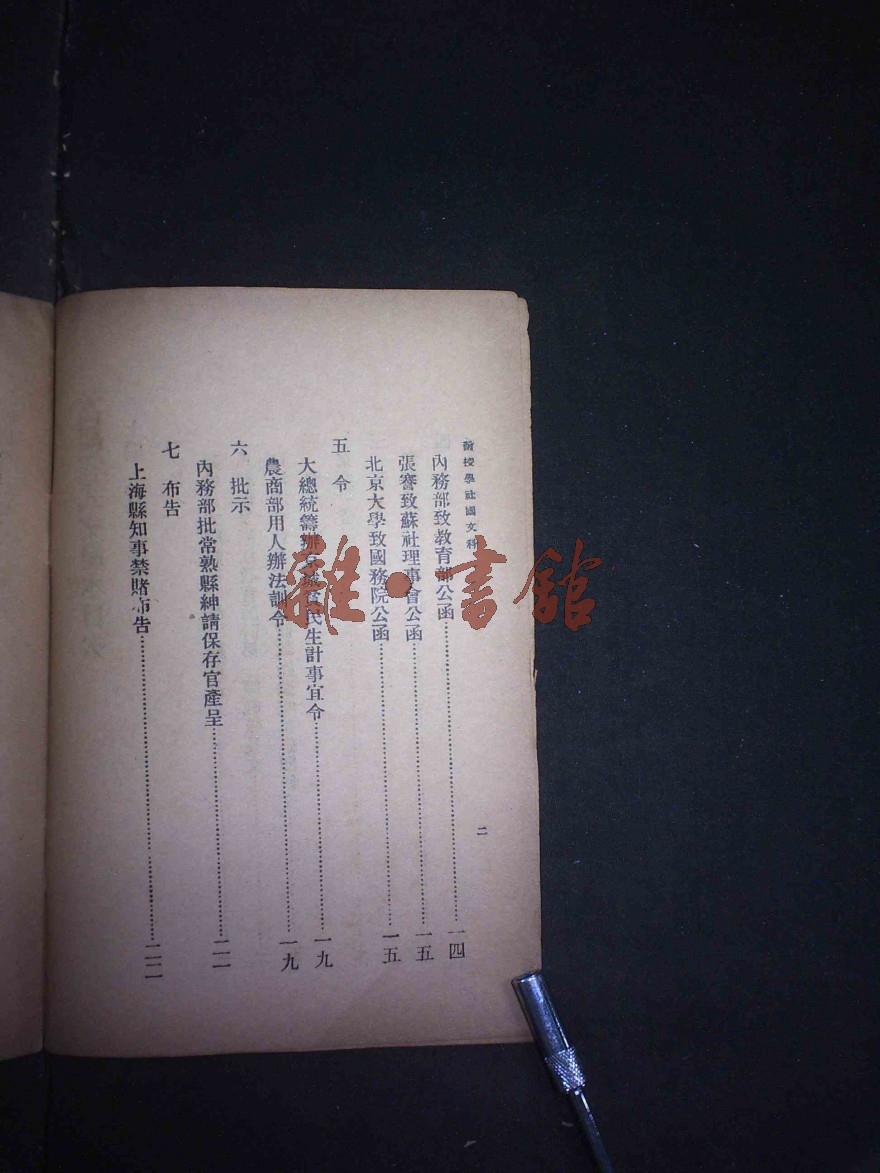 函授學社國文科
二
內務部致教育部公函 一四
張謇致蘇社理事會公函 一五
北京大學致國務院公函 一五
五 令
大總統籌辦京城貧民生計事宜令 一九
農商部用人辦法訓令 一九
六 批示
內務部批常熟縣紳請保存官產呈 二一
七 布告
上海縣知事禁賭布告 二二
雜·書館